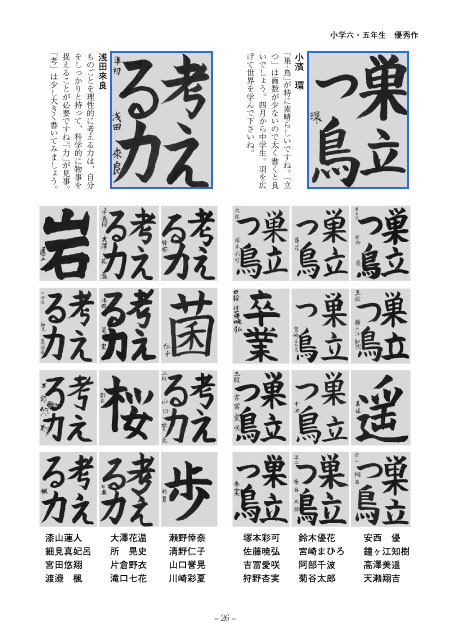 小学六・五年生　優秀作
巣立
つ鳥
環
小濱　環
「巣、鳥」が特に素晴らしいですね。「立
つ」は画数が少ないので太く書くと良
いでしょう。四月から中学生。羽を広
げて世界を学んで下さいね。
考え
る力
準初　浅田來良
浅田來良
ものごとを理性的に考える力は、自分
をしっかりと持って、科学的に物事を
捉えることが必要ですね。「力」が見事。
「考」は少し大きく書いてみましょう。
巣立
つ鳥
巣立
つ鳥
巣立
つ鳥
考え
る力
考え
る力
岩
巣立
つ鳥
巣立
つ鳥
卒業
菌
考え
る力
考え
る力
遥
巣立
つ鳥
巣立
つ鳥
考え
る力
桜
考え
る力
巣立
つ鳥
巣立
つ鳥
巣立
つ鳥
歩
考え
る力
考え
る力
漆山蓮人　大澤花温　瀬野倖奈　塚本彩可　鈴木優花　安西　優
細見真妃呂　所　晃史　清野仁子　佐藤暁弘　宮崎まひろ　鐘ヶ江知樹
宮田悠翔　片倉野衣　山口誉晃　吉冨愛咲　阿部千波　高澤美遥
渡邉　楓　滝口七花　川崎彩夏　狩野杏実　菊谷太郎　天瀬翔吉
- 26 -